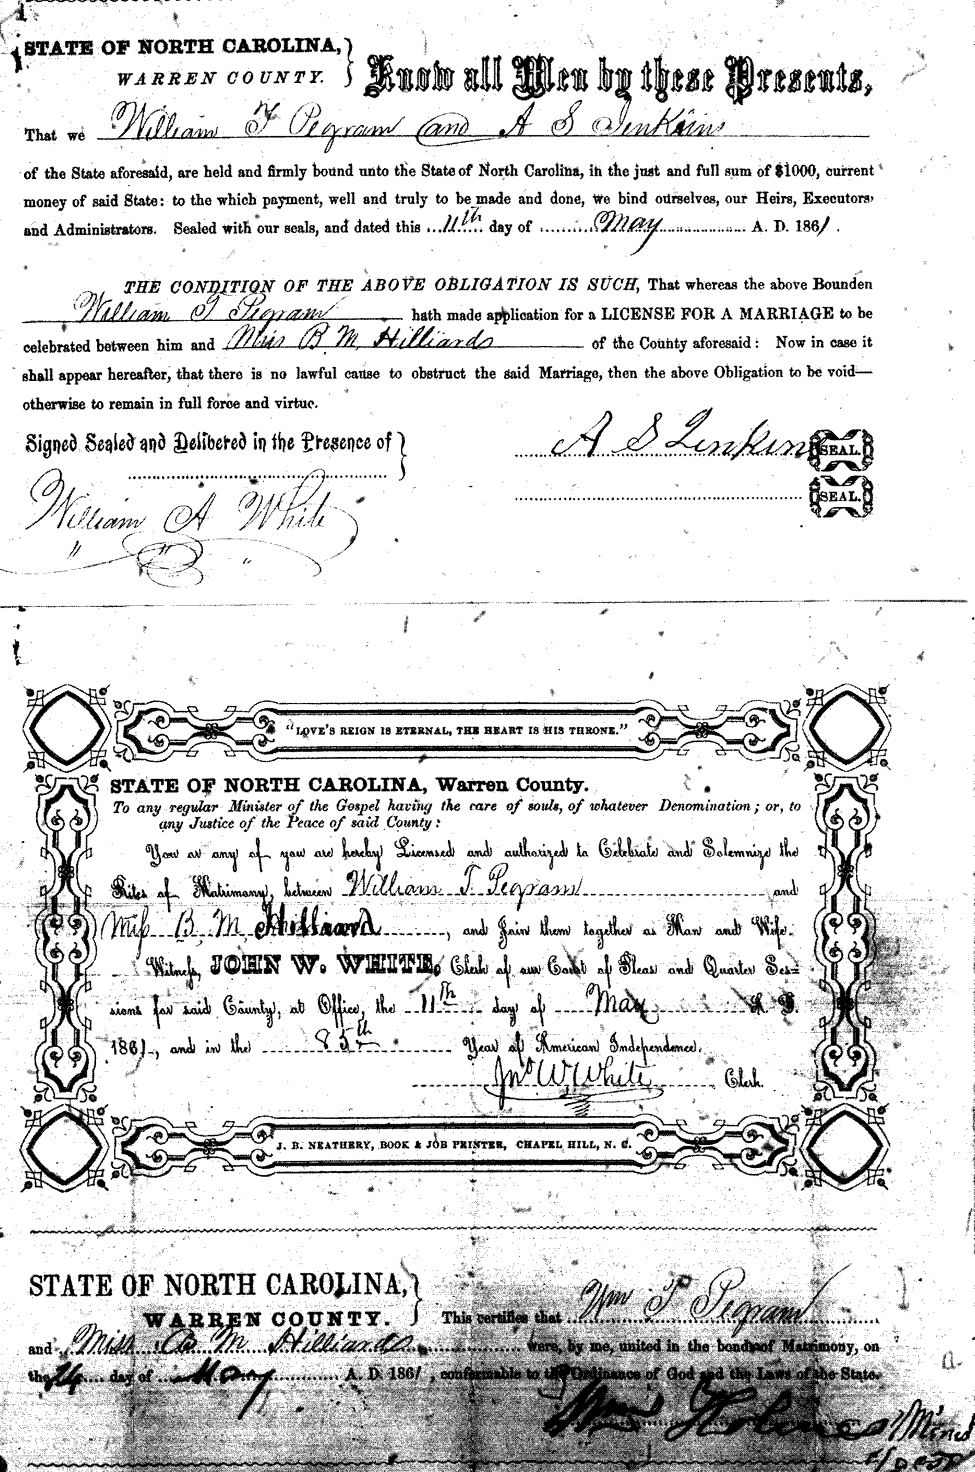 STATE OF NORTH CAROLINA,
WARREN COUNTY.
Know all Men by these Presents,
That we William T Pegram and A S Jenkins
of the State aforesaid, are held and firmly bound unto the State of North Carolina, in the just and full sum of $1000, current
money of said State: to the which payment, well and truly to be made and done, we bind ourselves, our Heirs, Executors
and Administrators. Sealed with our seals, and dated this 11th day of May A. D. 1861.
THE CONDITION OF THE ABOVE OBLIGATION IS SUCH, That whereas the above Bounden
William T Pegram hath made application for a LICENSE FOR A MARRIAGE to be
celebrated between him and Miss B M Hilliards of the County aforesaid: Now in case it
shall appear hereafter, that there is no lawful cause to obstruct the said Marriage, then the above Obligation to be void—
otherwise to remain in full force and virtue.
Signed Sealed and Delibered in the Presence of
A S Jenkins SEAL.
SEAL.
William A White
"LOVE'S REIGN IS ETERNAL, THE HEART IS HIS THRONE."
STATE OF NORTH CAROLINA, Warren County.
To any regular Minister of the Gospel having the care of souls, of whatever Denomination; or, to
any Justice of the Peace of said County:
You or any of you are hereby Licensed and authorized to Celebrate and Solemnize the
Rites of Matrimony, between William T. Pegram and
Miss B. M. Hilliard, and Join them together as Man and Wife.
Witness, JOHN W. WHITE, Clerk of our Court of Pleas and Quarter Ses=
sions for said County, at Office, the 11th day of May A. D.
1861, and in the 85th Year of American Independence.
Jno W White Clerk.
J. B. NEATHERY, BOOK & JOB PRINTER, CHAPEL HILL, N. C.
STATE OF NORTH CAROLINA,
WARREN COUNTY.
This certifies that Wm T Pegram
and Miss B M Hilliards were, by me, united in the bonds of Matrimony, on
the day of May A. D. 1861, conformable to the Ordinance of God and the Laws of the State.
Wm Holmes